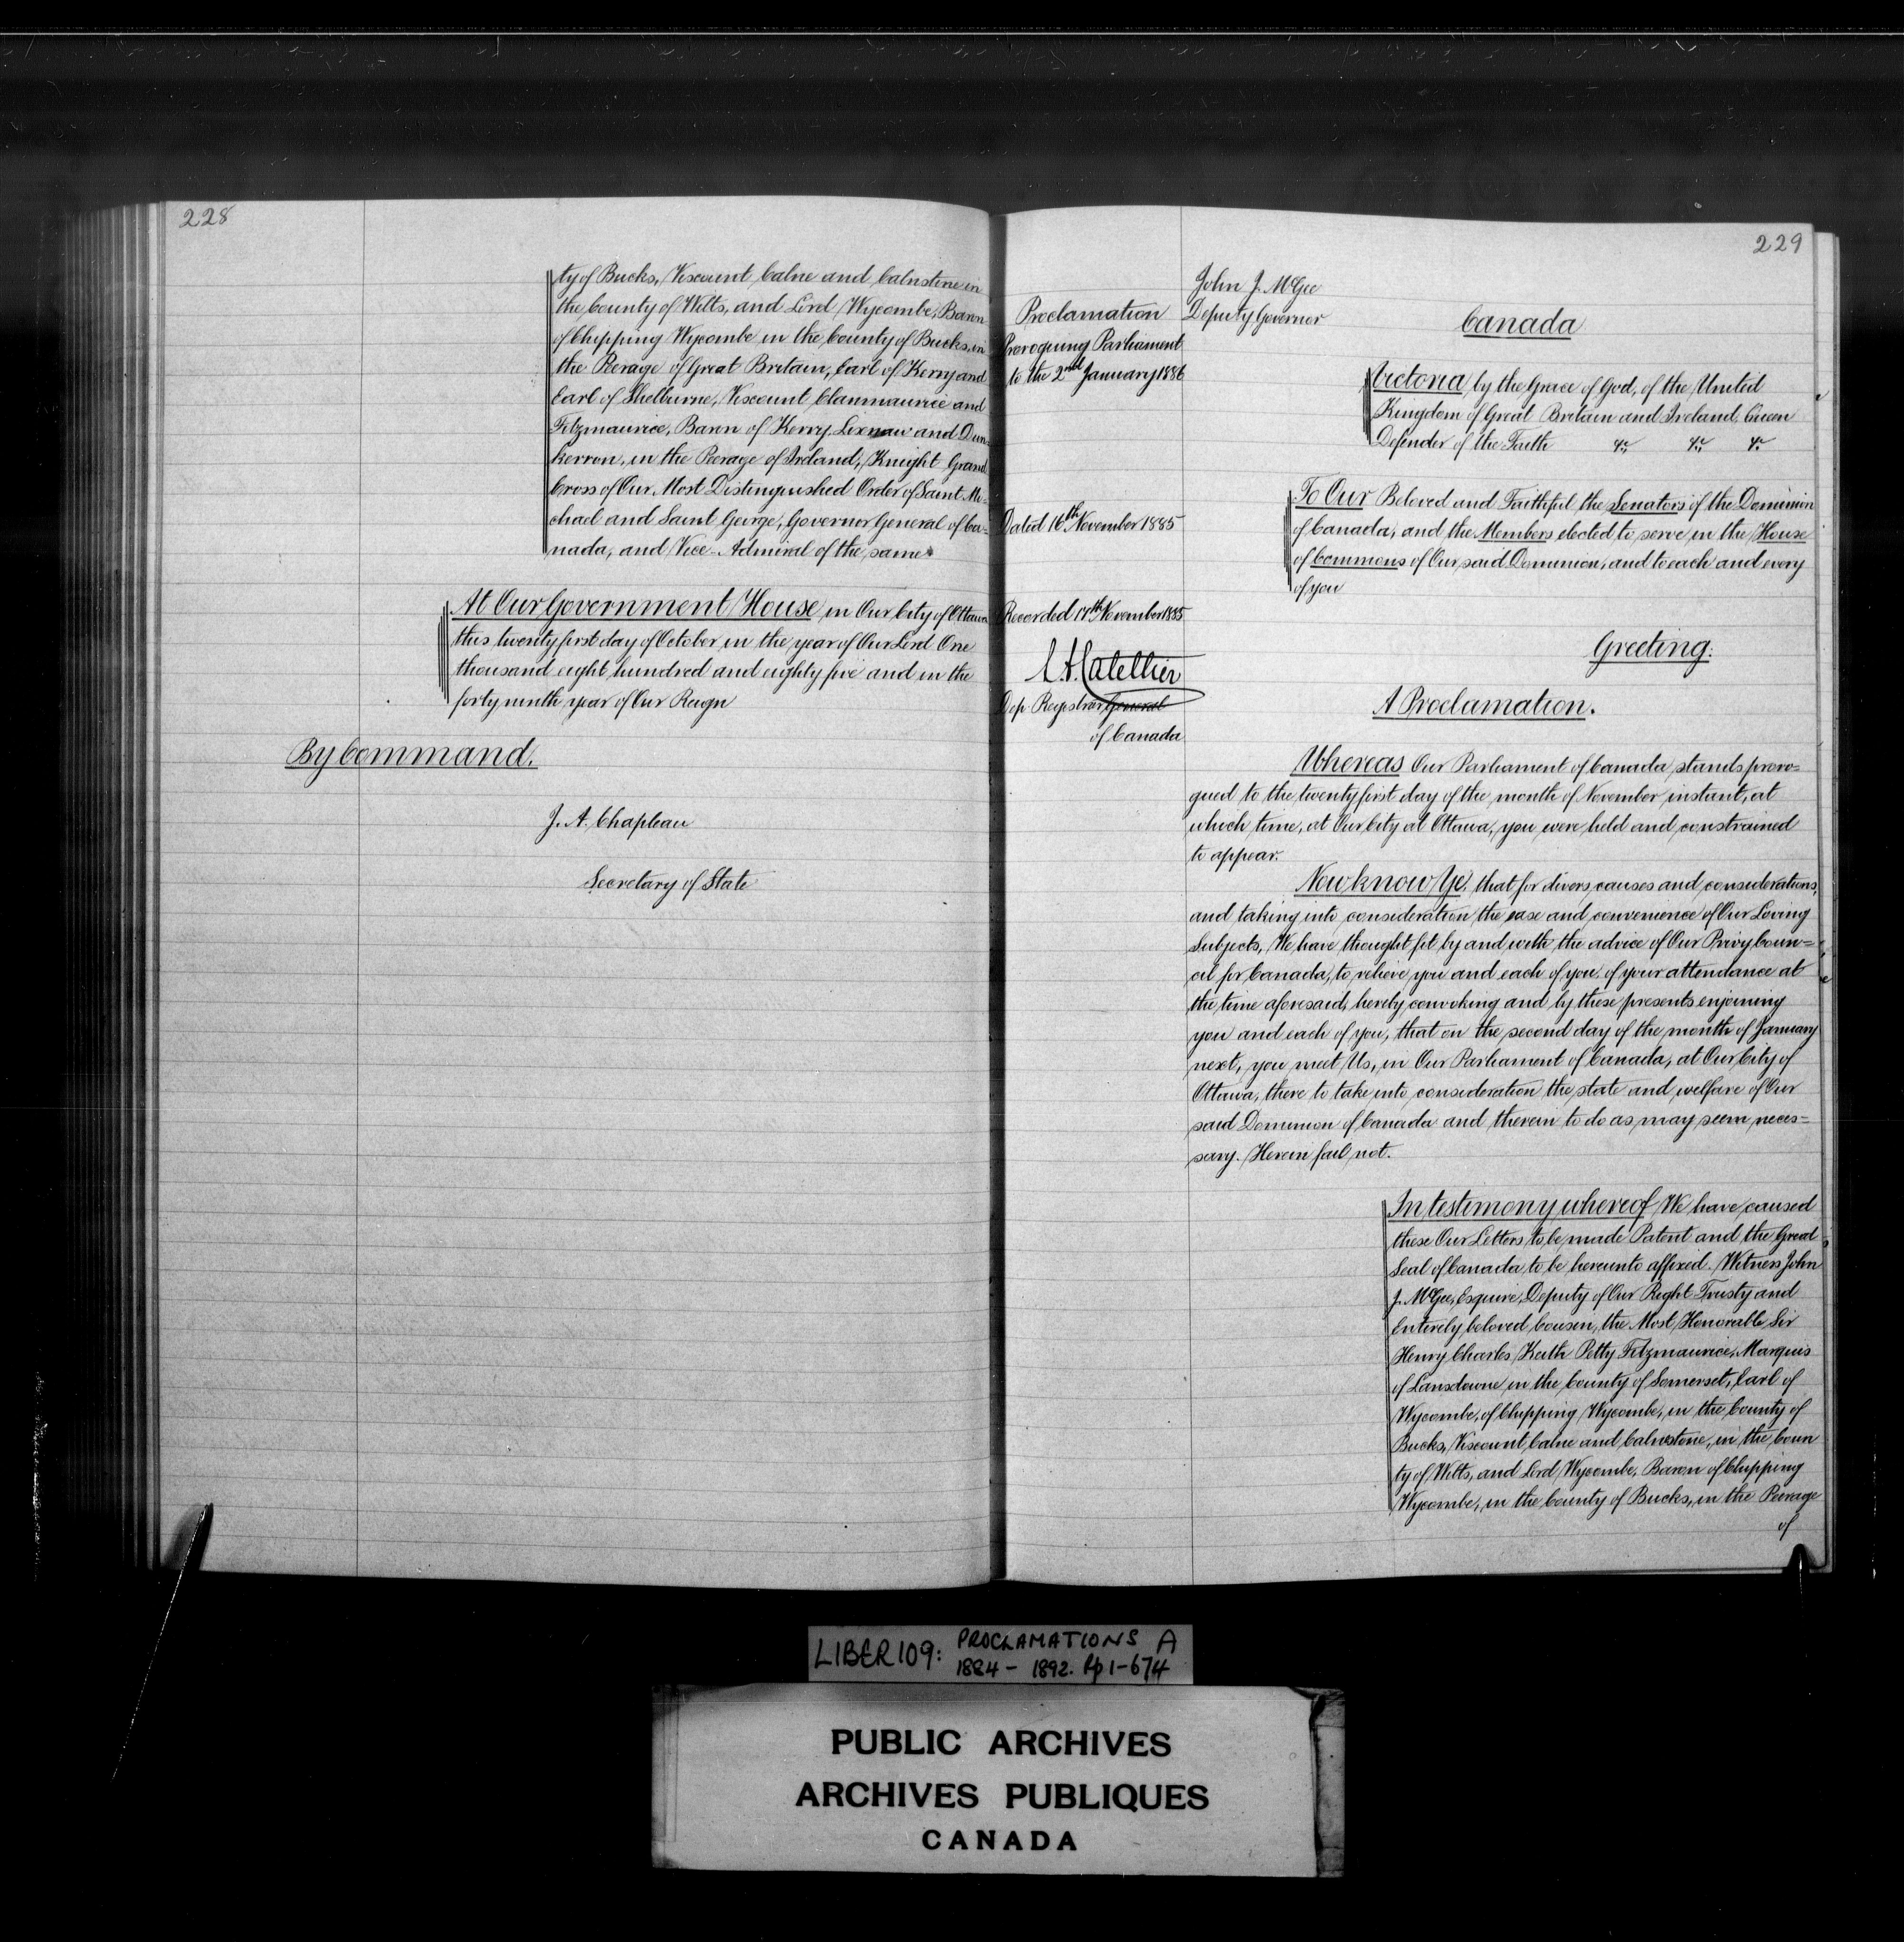 228
ty of Bucks, Viscount Calne and Calnstone in
the County of Wilts, and Lord Wycombe, Baron
of Chipping Wycombe in the County of Bucks, in
the Perage of Great Britain, Earl of Kerry and
Earl of Shelburne, Viscount Clanmaurice and
Fitzmaurice, Baron of Kerry, Lixnaw and Dun-
kerron, in the Peerage of Ireland, Knight Grand
Cross of Our Most Distinguished Order of Saint Mi-
chael and Saint George, Governor General of Ca-
nada, and Vice-Admiral of the same
At Our Government House in Our City of Ottawa
this twenty first day of October in the year of Our Lord One
thousand eight hundred and eighty five and in the
forty ninth year of Our Reign
By Command.
J. A. Chapleau
Secretary of State
229
John J. McGee
Deputy Governor
Proclamation
Proroguing Parliament
to the 2nd January 1886
Dated 16th November 1885
Recorded 17th November 1885
L. A. Catellier
Dep Registrar General
of Canada
Canada
Victoria by the Grace of God, of the United
Kingdom of Great Britain and Ireland, Queen
Defender of the Faith &c., &c., &c.
To Our Beloved and Faithful the Senators of the Dominion
of Canada, and the Members elected to serve in the House
of Commons of Our said Dominion, and to each and every
of you
Greeting:
A Proclamation.
Whereas Our Parliament of Canada stands proro=
gued to the twenty first day of the month of November instant, at
which time, at Our City at Ottawa, you were held and constrained
to appear.
Now know Ye, that for divers causes and considerations,
and taking into consideration the ease and convenience of Our Loving
Subjects, We have thought fit by and with the advice of Our Privy Coun=
cil for Canada, to relieve you and each of you, of your attendance at
the time aforesaid, hereby convoking and by these presents enjoining
you and each of you, that on the second day of the month of January
next, you meet Us, in Our Parliament of Canada, at Our City of
Ottawa, there to take into consideration the state and welfare of Our
said Dominion of Canada and therein to do as may seem neces=
sary. Herein fail not.
In testimony whereof We have caused
these Our Letters to be made Patent and the Great
Seal of Canada to be hereunto affixed. Witness John
J. McGee, Esquire, Deputy of Our Right Trusty and
Entirely beloved Cousin, the Most Honorable Sir
Henry Charles Keith Petty Fitzmaurice, Marquis
of Lansdowne in the County of Somerset, Earl of
Wycombe, of Chipping Wycombe, in the County of
Bucks, Viscount Calne and Calnstone, in the Coun
ty of Wilts, and Lord Wycombe, Baron of Chipping
Wycombe, in the County of Bucks, in the Peerage
of
LIBER 109: PROCLAMATIONS A
1884 - 1892. Pp 1-674
PUBLIC ARCHIVES
ARCHIVES PUBLIQUES
CANADA